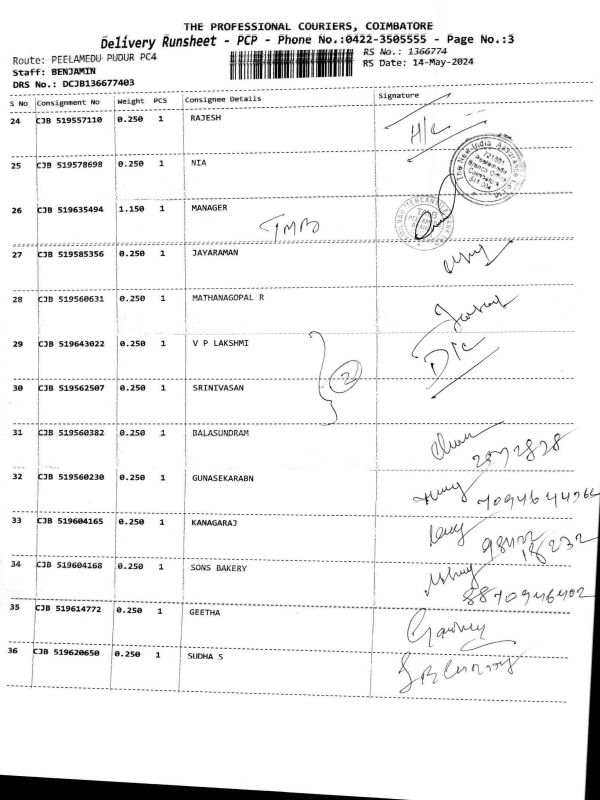 THE PROFESSIONAL COURIERS, COIMBATORE
Delivery Runsheet - PCP - Phone No.:0422-3505555 - Page No.:3
Route: PEELAMEDU PUDUR PC4
RS No.: 1366774
Staff: BENJAMIN
RS Date: 14-May-2024
DRS No.: DCJB136677403
S No Consignment No Weight PCS Consignee Details Signature
24 CJB 519557110 0.250 1 RAJESH
H/C
25 CJB 519578698 0.250 1 NIA
The New India Assurance Co. Ltd.
721301
Peelamedu
Branch Office
Coimbatore
641 004
26 CJB 519635494 1.150 1 MANAGER
TMB
27 CJB 519585356 0.250 1 JAYARAMAN
28 CJB 519560631 0.250 1 MATHANAGOPAL R
29 CJB 519643022 0.250 1 V P LAKSHMI
D/C
2
30 CJB 519562507 0.250 1 SRINIVASAN
31 CJB 519560382 0.250 1 BALASUNDRAM
32 CJB 519560230 0.250 1 GUNASEKARABN
33 CJB 519604165 0.250 1 KANAGARAJ
18232
34 CJB 519604168 0.250 1 SONS BAKERY
8870946402
35 CJB 519614772 0.250 1 GEETHA
36 CJB 519620650 0.250 1 SUDHA S